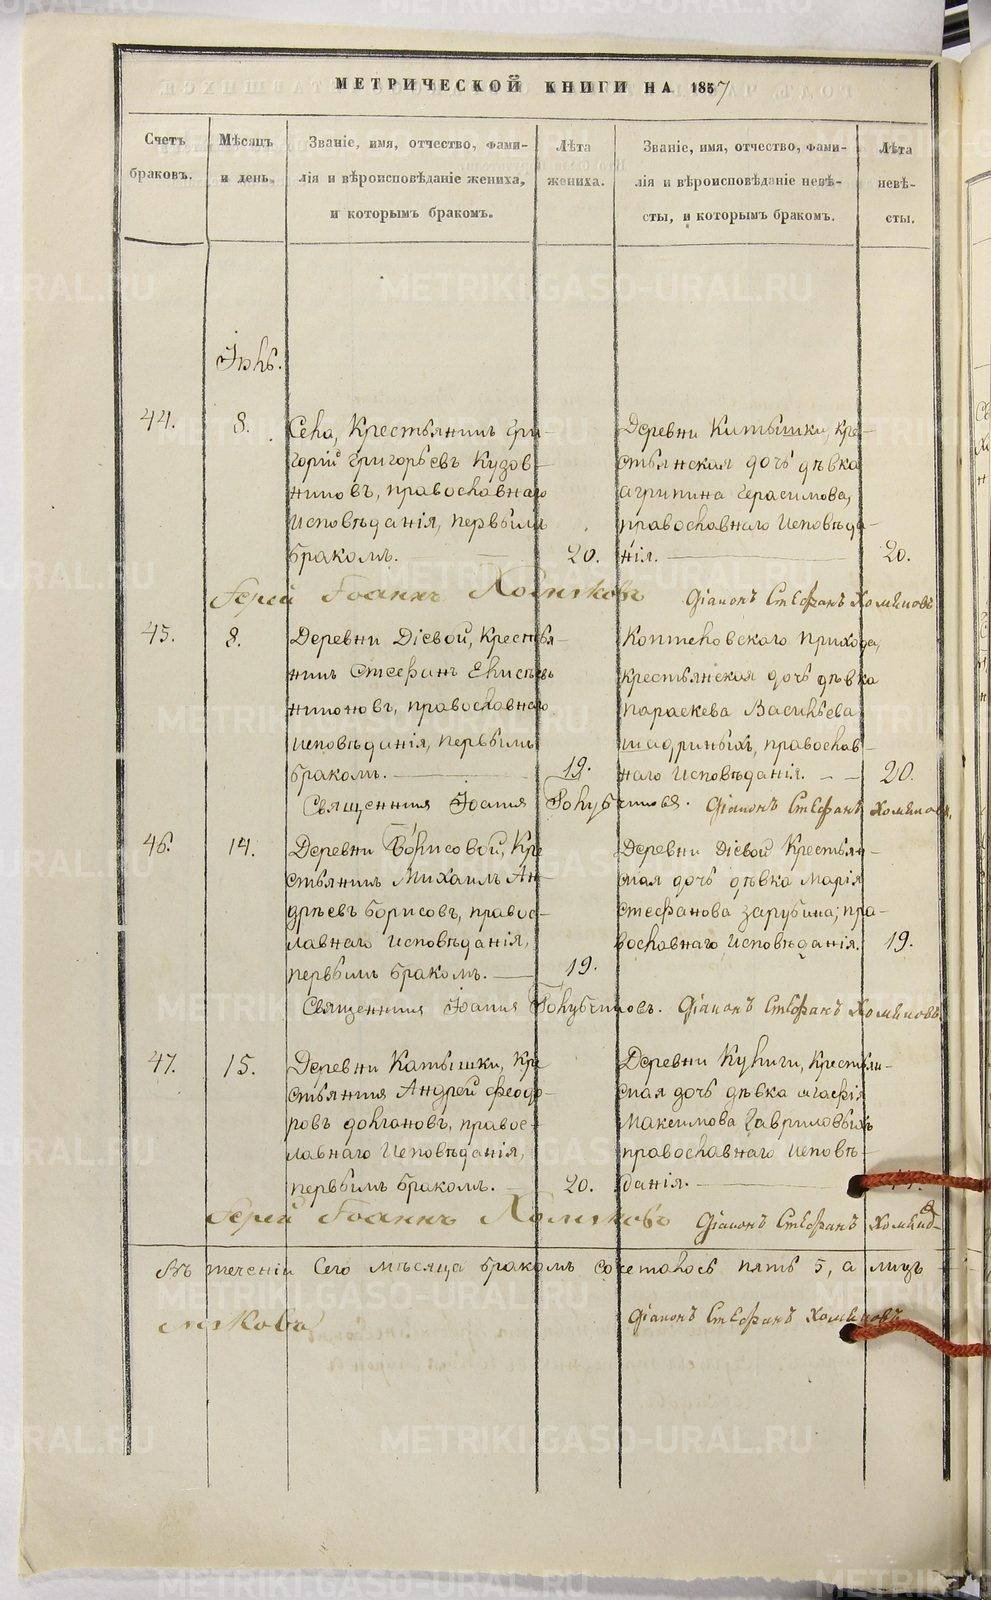 МЕТРИЧЕСКОЙ КНИГИ НА 1857
Счетъ браковъ.
Мѣсяцъ и день.
Званіе, имя, отчество, фами-
лія и вѣроисповѣданіе жениха,
и которымъ бракомъ.
Лѣта жениха.
Званіе, имя, отчество, фами-
лія и вѣроисповѣданіе невѣ-
сты, и которымъ бракомъ.
Лѣта невѣ-
сты.
44.
8.
Села, Крестьянинъ Гри-
горій Григорьевъ Кузов-
никовъ, православнаго
исповѣданія, первымъ
бракомъ.
20.
Деревни Катышки, кре-
стьянская дочь дѣвка
Агрипина Герасимова,
православнаго исповѣда-
нія.
20.
Іерей Іоаннъ Хомяковъ
Діаконъ Стефанъ Хомяковъ
45.
8.
Деревни Діевой, крестья-
нинъ Стефанъ Елисѣевъ
православнаго
исповѣданія, первымъ
бракомъ.
19.
Коптеловскаго прихода,
крестьянская дочь дѣвка
Параскева Васильева
Шадриныхъ, православ-
наго исповѣданія.
20.
Священникъ Іоаннъ Голубчиковъ. Діаконъ Стефанъ Хомяковъ.
46.
14.
Деревни Борисовой, Кре
стьянинъ Михаилъ Ан-
дрѣевъ Борисовъ, правос-
лавнаго исповѣданія,
первымъ бракомъ.
19.
Деревни Діевой Крестьян-
ская дочь дѣвка Марія
Стефанова Зарубина, пра-
вославнаго исповѣданія.
19.
Священникъ Іоаннъ Голубчиковъ. Діаконъ Стефанъ Хомяковъ.
47.
15.
Деревни Катышки, Кре
стьянинъ Андрей Феодо-
ровъ Долгановъ, правос-
лавнаго исповѣданія,
первымъ бракомъ.
20.
Деревни Кулиги, Крестьян-
ская дочь дѣвка Агафія
Максимова Гавриловыхъ
православнаго исповѣ-
данія.
Іерей Іоаннъ Хомяковъ
Діаконъ Стефанъ
Въ теченіи сего мѣсяца бракомъ сочеталось пять 5, а лицъ
Діаконъ Стефанъ Хомяковъ
METRIKI.GASO-URAL.RU